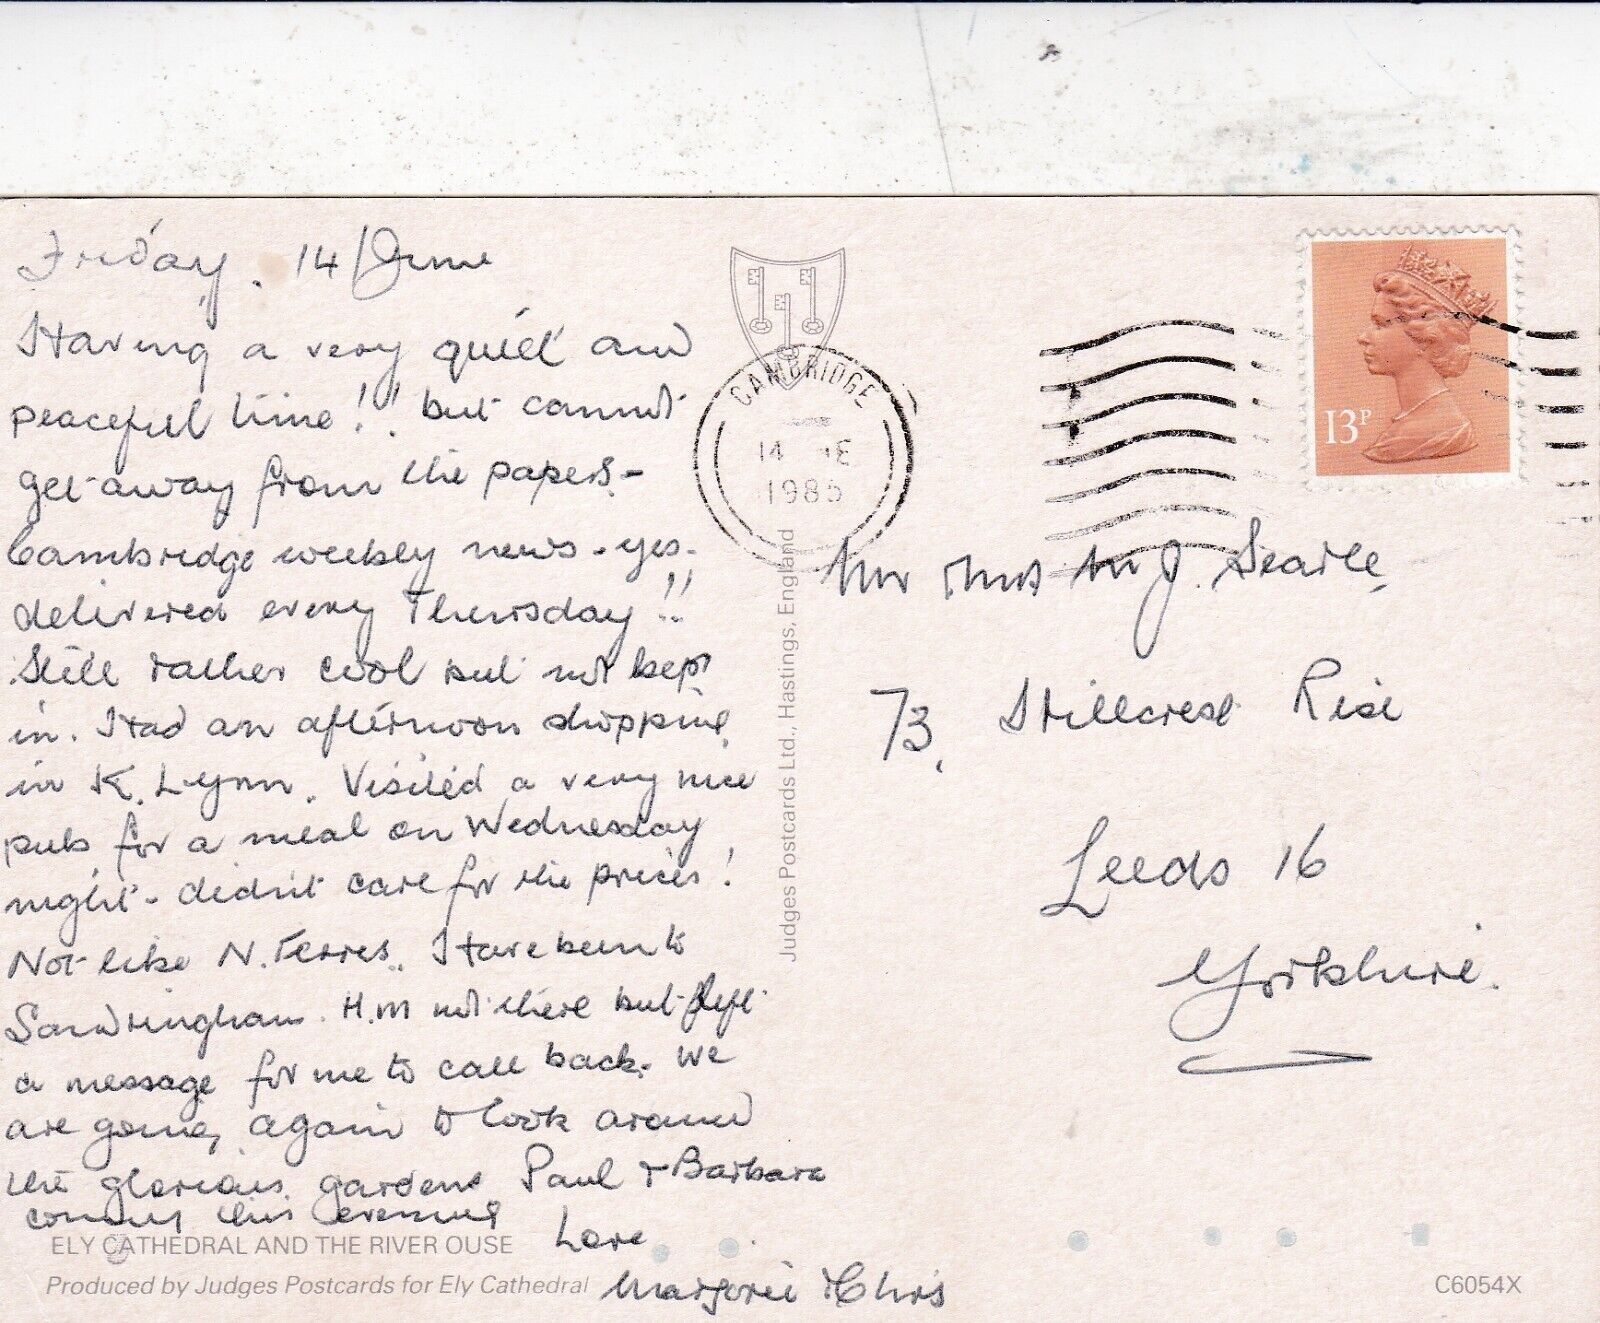 Friday. 14/June
Having a very quiet and
peaceful time!! but cannot
get away from the papers -
Cambridge weekly news - yes -
delivered every Thursday!!
Still rather cool but not kept
in. Had an afternoon shopping
in K. Lynn. Visited a very nice
pub for a meal on Wednesday
night - didn't care for the prices!
Not like N. Ferres. Have been to
Sandringham. H.M not there but left
a message for me to call back. We
are going again to look around
the glorious gardens. Paul & Barbara
coming this evening
Love
Marjorie & Chris
ELY CATHEDRAL AND THE RIVER OUSE
Produced by Judges Postcards for Ely Cathedral
Judges Postcards Ltd., Hastings, England
CAMBRIDGE
14
1985
13P
Mr & Mrs M J. Searle,
73, Hillcrest Rise
Leeds 16
Yorkshire.
C6054X